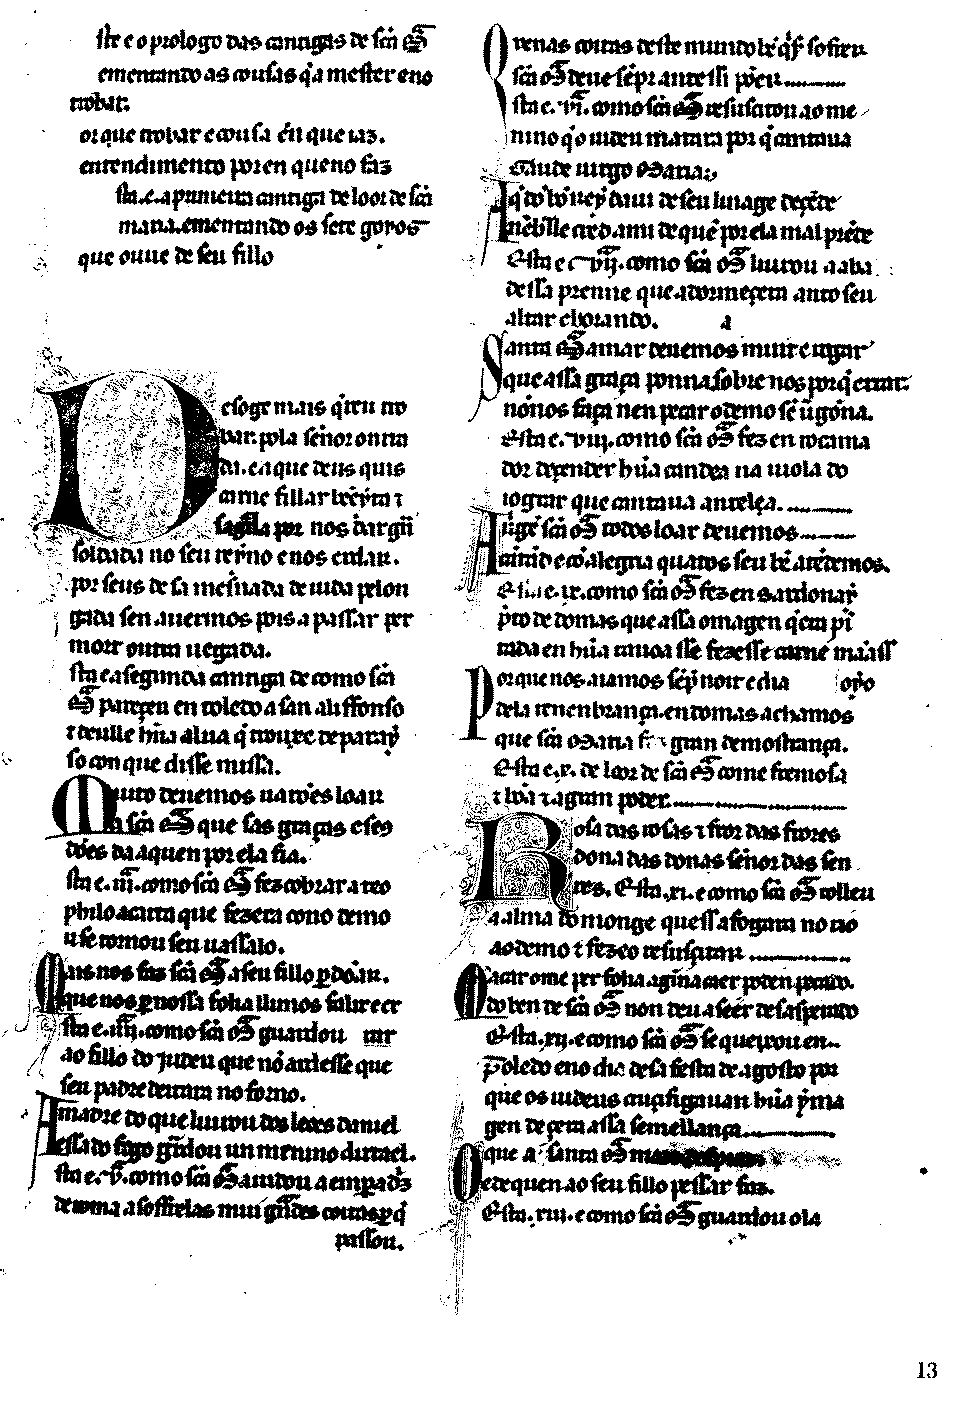 ste e o prologo das cantigas de scã Mª
ementando as cousas q̃ a mester eno
trobar.
or que trobar e cousa en que iaz.
entendimento poren queno faz
sta.e.a primeira cantiga de loor de scã
maria.ementando os sete goyos
que ouue de seu fillo
Desoge mais q̃reu tro
bar.pola señor onrra
da.en que deus quis
carne fillar bẽeyta ⁊
sagrada por nos dar gñ
soldada no seu reyno e nos erdar.
por seus de sa mesnada de uida perlon
gada sen auermos pois a passar per
mort outra uegada.
sta e a segunda cantiga de como scã
Mª pareçeu en toledo a san alifonsso
⁊ deulle hũa alua q̃ trouxe de parayso
so con que disse missa.
Muito deuemos uarões loar
a scã Mª que sas graças e seꝯ
dões da a quen por ela fia.
sta e.iii.como scã Mª fez cobrar a teo
philo a carta que fezera cono demo
u se tornou seu uassalo.
Mais nos faz scã Mª a seu fillo ꝑdõar.
que nos ꝑ nossa folia llimos falir eer
sta e.iiii.como scã Mª guardou
ao fillo do judeu que nõ ardesse que
seu padre deitara no forno.
A madre do que liurou dos leões daniel
essa do fogo g̃rdou un menino dirrael.
sta e.v.como scã Mª aiudou a emꝑadz̃
de roma a soffrelas mui g̃ndes coitas ꝑ q̃
passou.
Quenas coitas deste mundo bẽ q̃ser sofrer
scã Mª deue sẽpr ante ssi põer..........
sta e.vi.como scã Mª resuscitou ao me
nino q̃ o iudeu matara por q̃ cantaua
Gaude uirgo Maria.
A q̃ do bõ rey daui de seu linage deçẽde
nẽbralle creo ami de quẽ por ela mal prẽde
Esta e vii.como scã Mª liurou a aba
dessa prenne que adormeçera anto seu
altar chorando.
Santa Mª amar deuemos muit e rogar
que a ssa graça ponna sobre nos por q̃ errar
nõ nos faça nen pecar o demo sẽ ũgõna.
Esta e.viii.como scã Mª fez en rocama
dor deçender hũa candea na uiola do
iograr que cantaua antela..........
A uirgẽ scã Mª todos loar deuemos
cantãd e cõ alegria quantos seu bẽ atẽdemos.
Esta e.ix.como scã Mª fez en sardonay
p̃to de domas que a ssa omagen q̃ era pĩ
tada en hũa tauoa sse fezesse carne
Por que nos aiamos sẽp̃ noit e dia
dela renenbrança.en domas achamos
que scã Maria fez gran demostrança.
Esta e.x. de loor de scã Mª come fremosa
⁊ bõa ⁊ a gran poder.
Rosa das rosas ⁊ fror das frores
dona das donas señor das sen
res. Esta.xi.e como scã Mª tolleu
a alma do monge que ss afogara no rio
ao demo ⁊ fezeo resusçitar.
Macar ome per folia.aginna caer poden pecado.
do ben de scã Mª non deu a seer desasperado
Esta.xii.e como scã Mª se queixou en
Toledo eno dia de sa festa de agosto por
que os iudeus cruçifigauan hũa ymã
gen de çera a ssa semellança.
O que a santa Mª mais despraz
e de quen ao seu fillo pessar faz.
Esta.xiii.e como scã Mª guardou ola
13